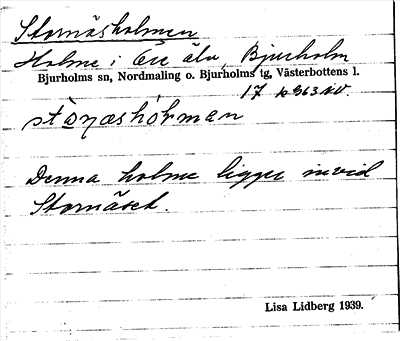 Stornäsholmen
Holme i Öre älv, Bjurholm
Bjurholms sn, Nordmaling o. Bjurholms tg, Västerbottens l.
17
Denna holme ligger invid
Stornäset.
Lisa Lidberg 1939.